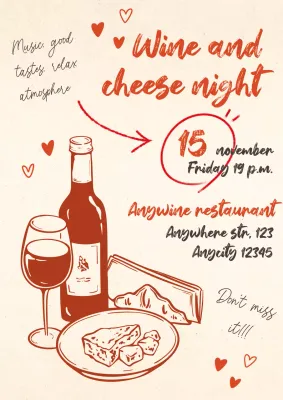 Music, good
tastes, relax
atmosphere
Wine and
cheese night
15 november
Friday 19 p.m.
Anywine restaurant
Anywhere str., 123
Anycity 12345
Don't miss
it!!!